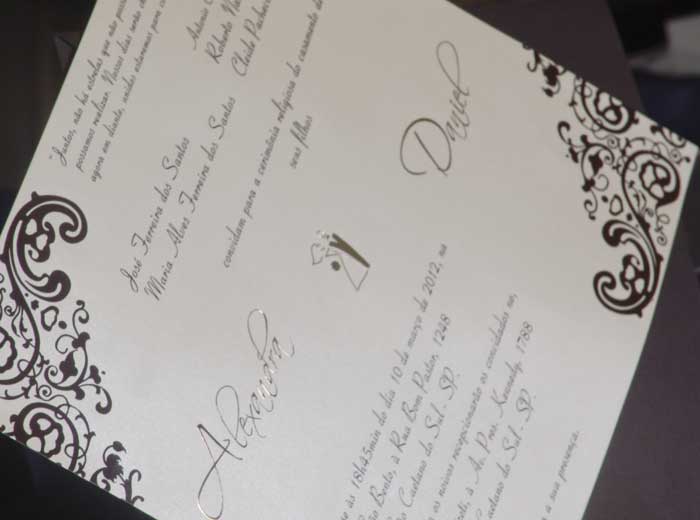 "Juntos, não há estrelas que não possa
possamos realizar. Nossos dias serão
agora em diante, unidos olharemos para
José Ferreira dos Santos
Maria Alves Ferreira dos Santos
Antonio
Roberto
Cleide Pacheco
convidam para a cerimônia religiosa do casamento de
seus filhos
Alexandra
Daniel
às 18h45min do dia 10 de março de 2012, na
Bento, à Rua Bom Pastor, 1248
Caetano do Sul - SP.
os noivos recepcionarão os convidados no,
à Av. Pres. Kennedy, 1788
Caetano do Sul - SP.
a sua presença.